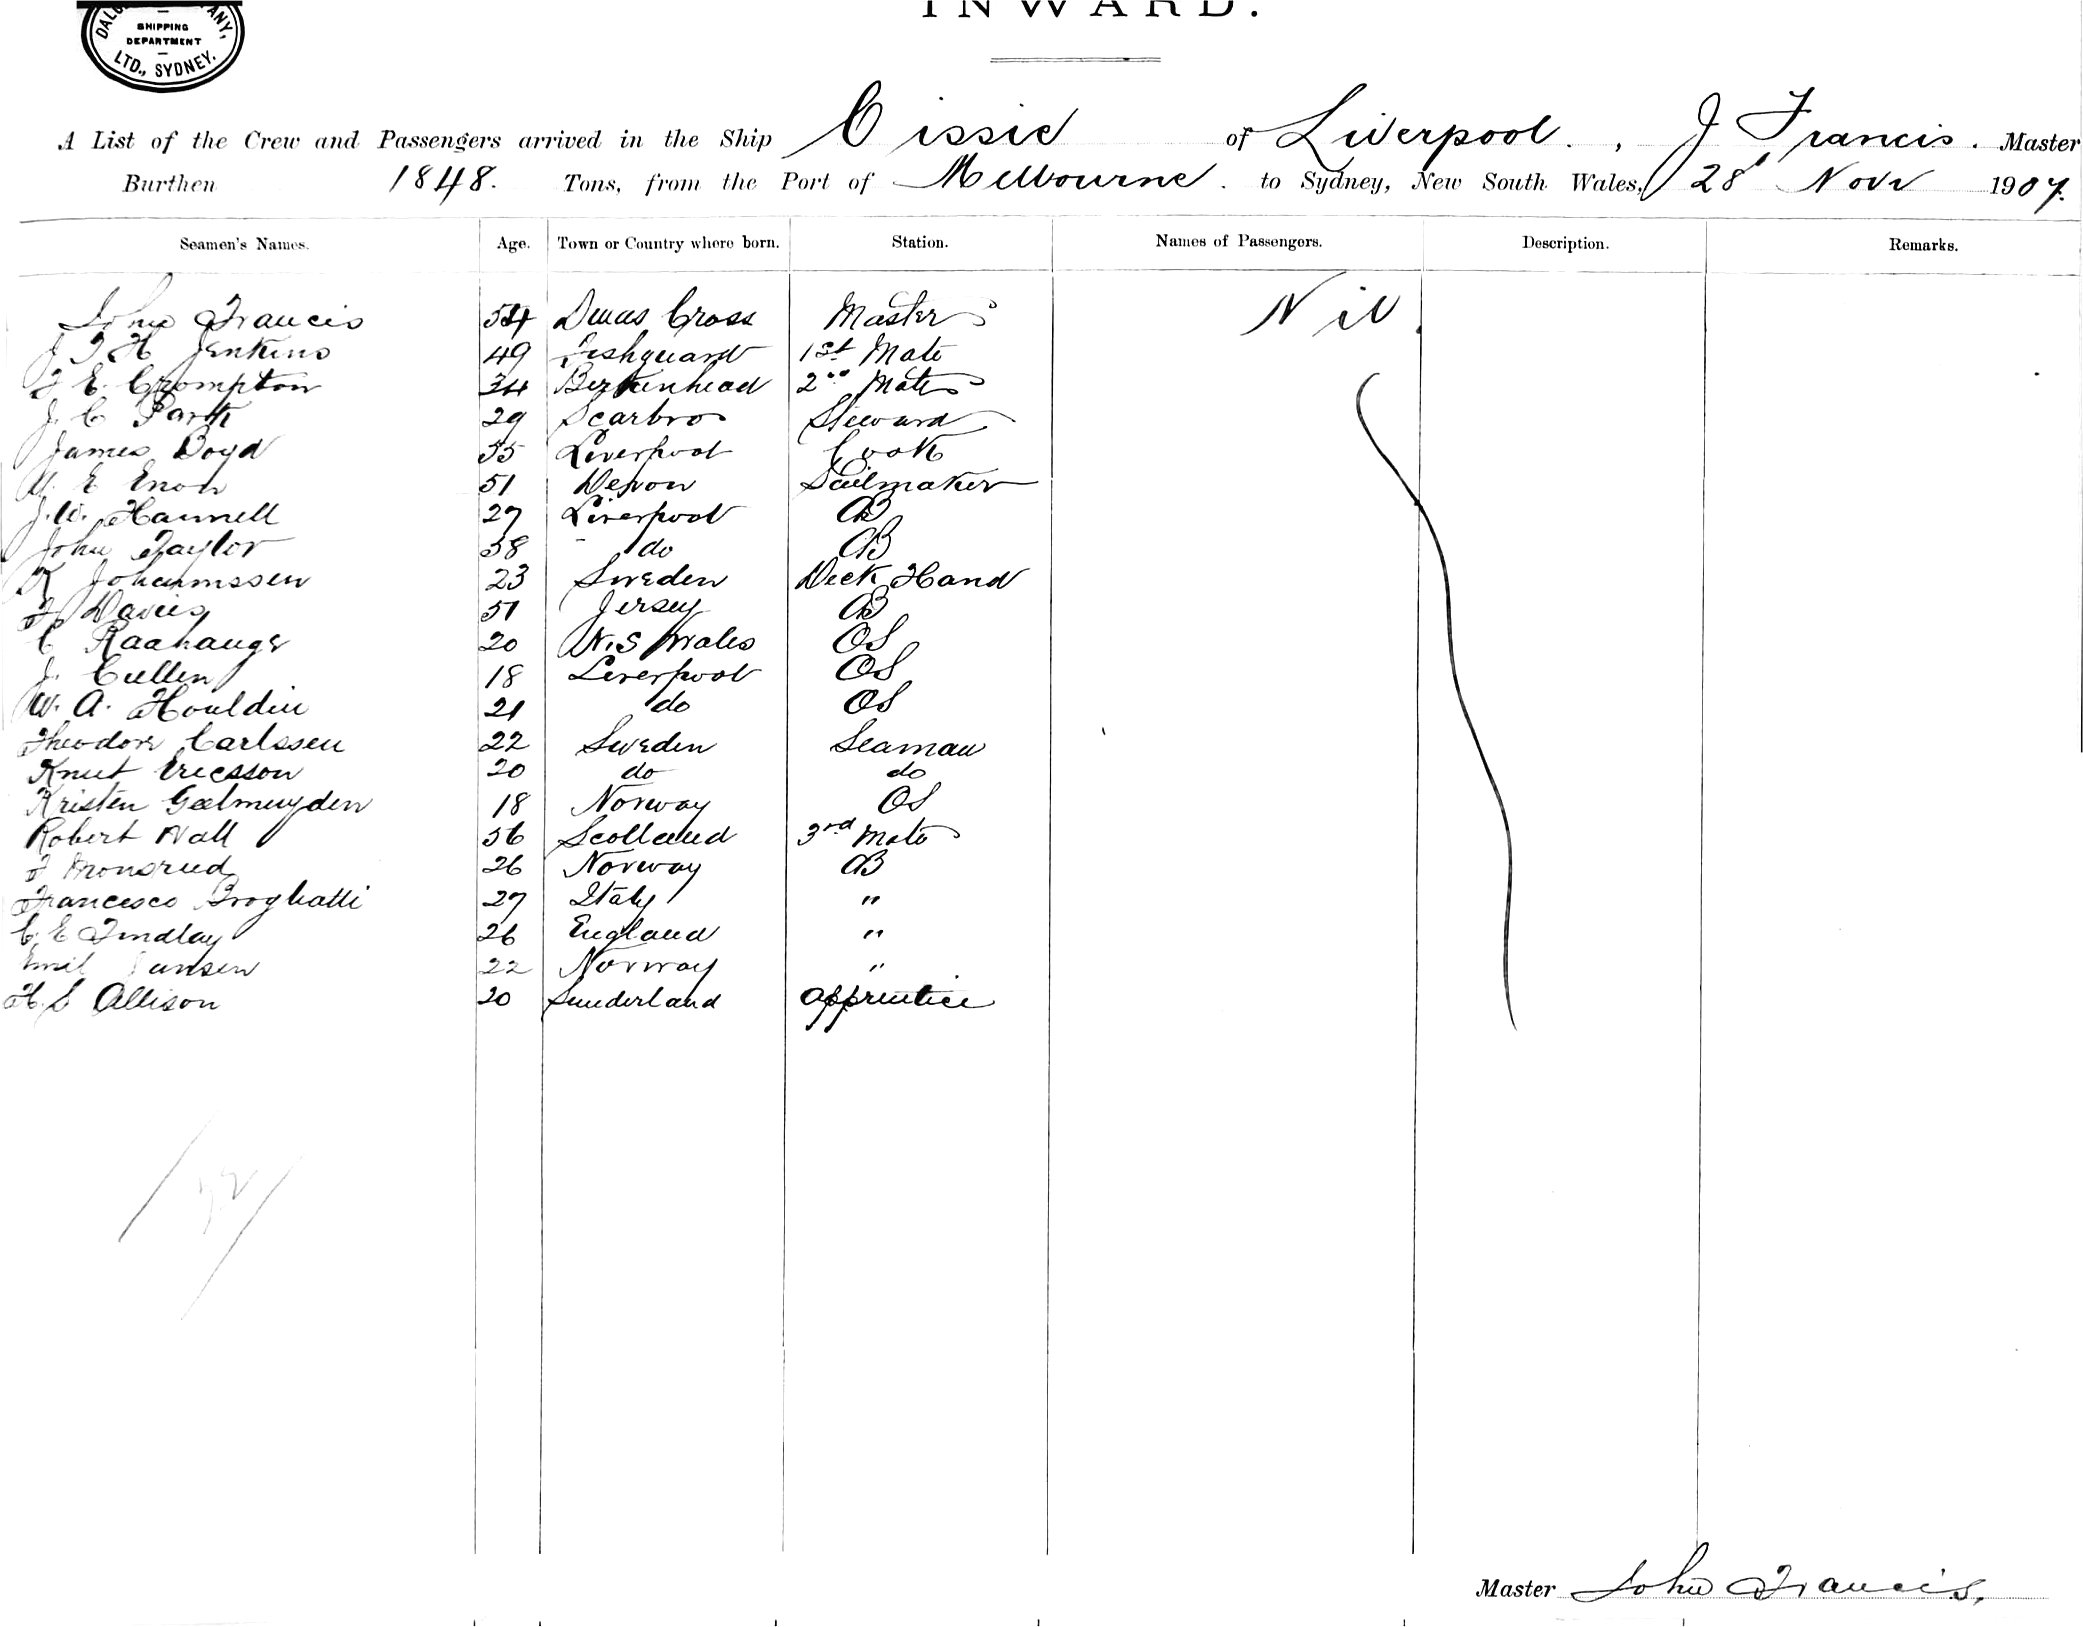 SHIPPING
DEPARTMENT
LTD., SYDNEY.
INWARD.
A List of the Crew and Passengers arrived in the Ship Cissie of Liverpool. , J Francis. Master
Burthen 1848. Tons, from the Port of Melbourne. to Sydney, New South Wales, 28 Novr 1907.
Seamen's Names. Age. Town or Country where born. Station. Names of Passengers. Description. Remarks.
John Francis 54 Dinas Cross Master Nil.
J T H Jenkins 49 Fishguard 1st Mate
F E. Crompton 34 Birkenhead 2nd Mate
J. C Park 29 Scarbro Steward
James Boyd 55 Liverpool Cook
E Enon 51 Devon Sailmaker
J. W. Hannell 27 Liverpool AB
John Taylor 58 do AB
K Johannssen 23 Sweden Deck Hand
F Davies 51 Jersey AB
C Raahauge 20 N. S Wales OS
J. Cullen 18 Liverpool OS
W. A. Houldin 21 do OS
Theodore Carlssen 22 Sweden Seaman
Knut Ericsson 20 do do
Kristen Geelmuyden 18 Norway OS
Robert Hall 56 Scotland 3rd Mate
F Monsrud 26 Norway AB
Francesco Broghatti 27 Italy "
C. E Findlay 26 England "
Emil Jansen 22 Norway "
H. S Allison 20 Sunderland Apprentice
Master John Francis.